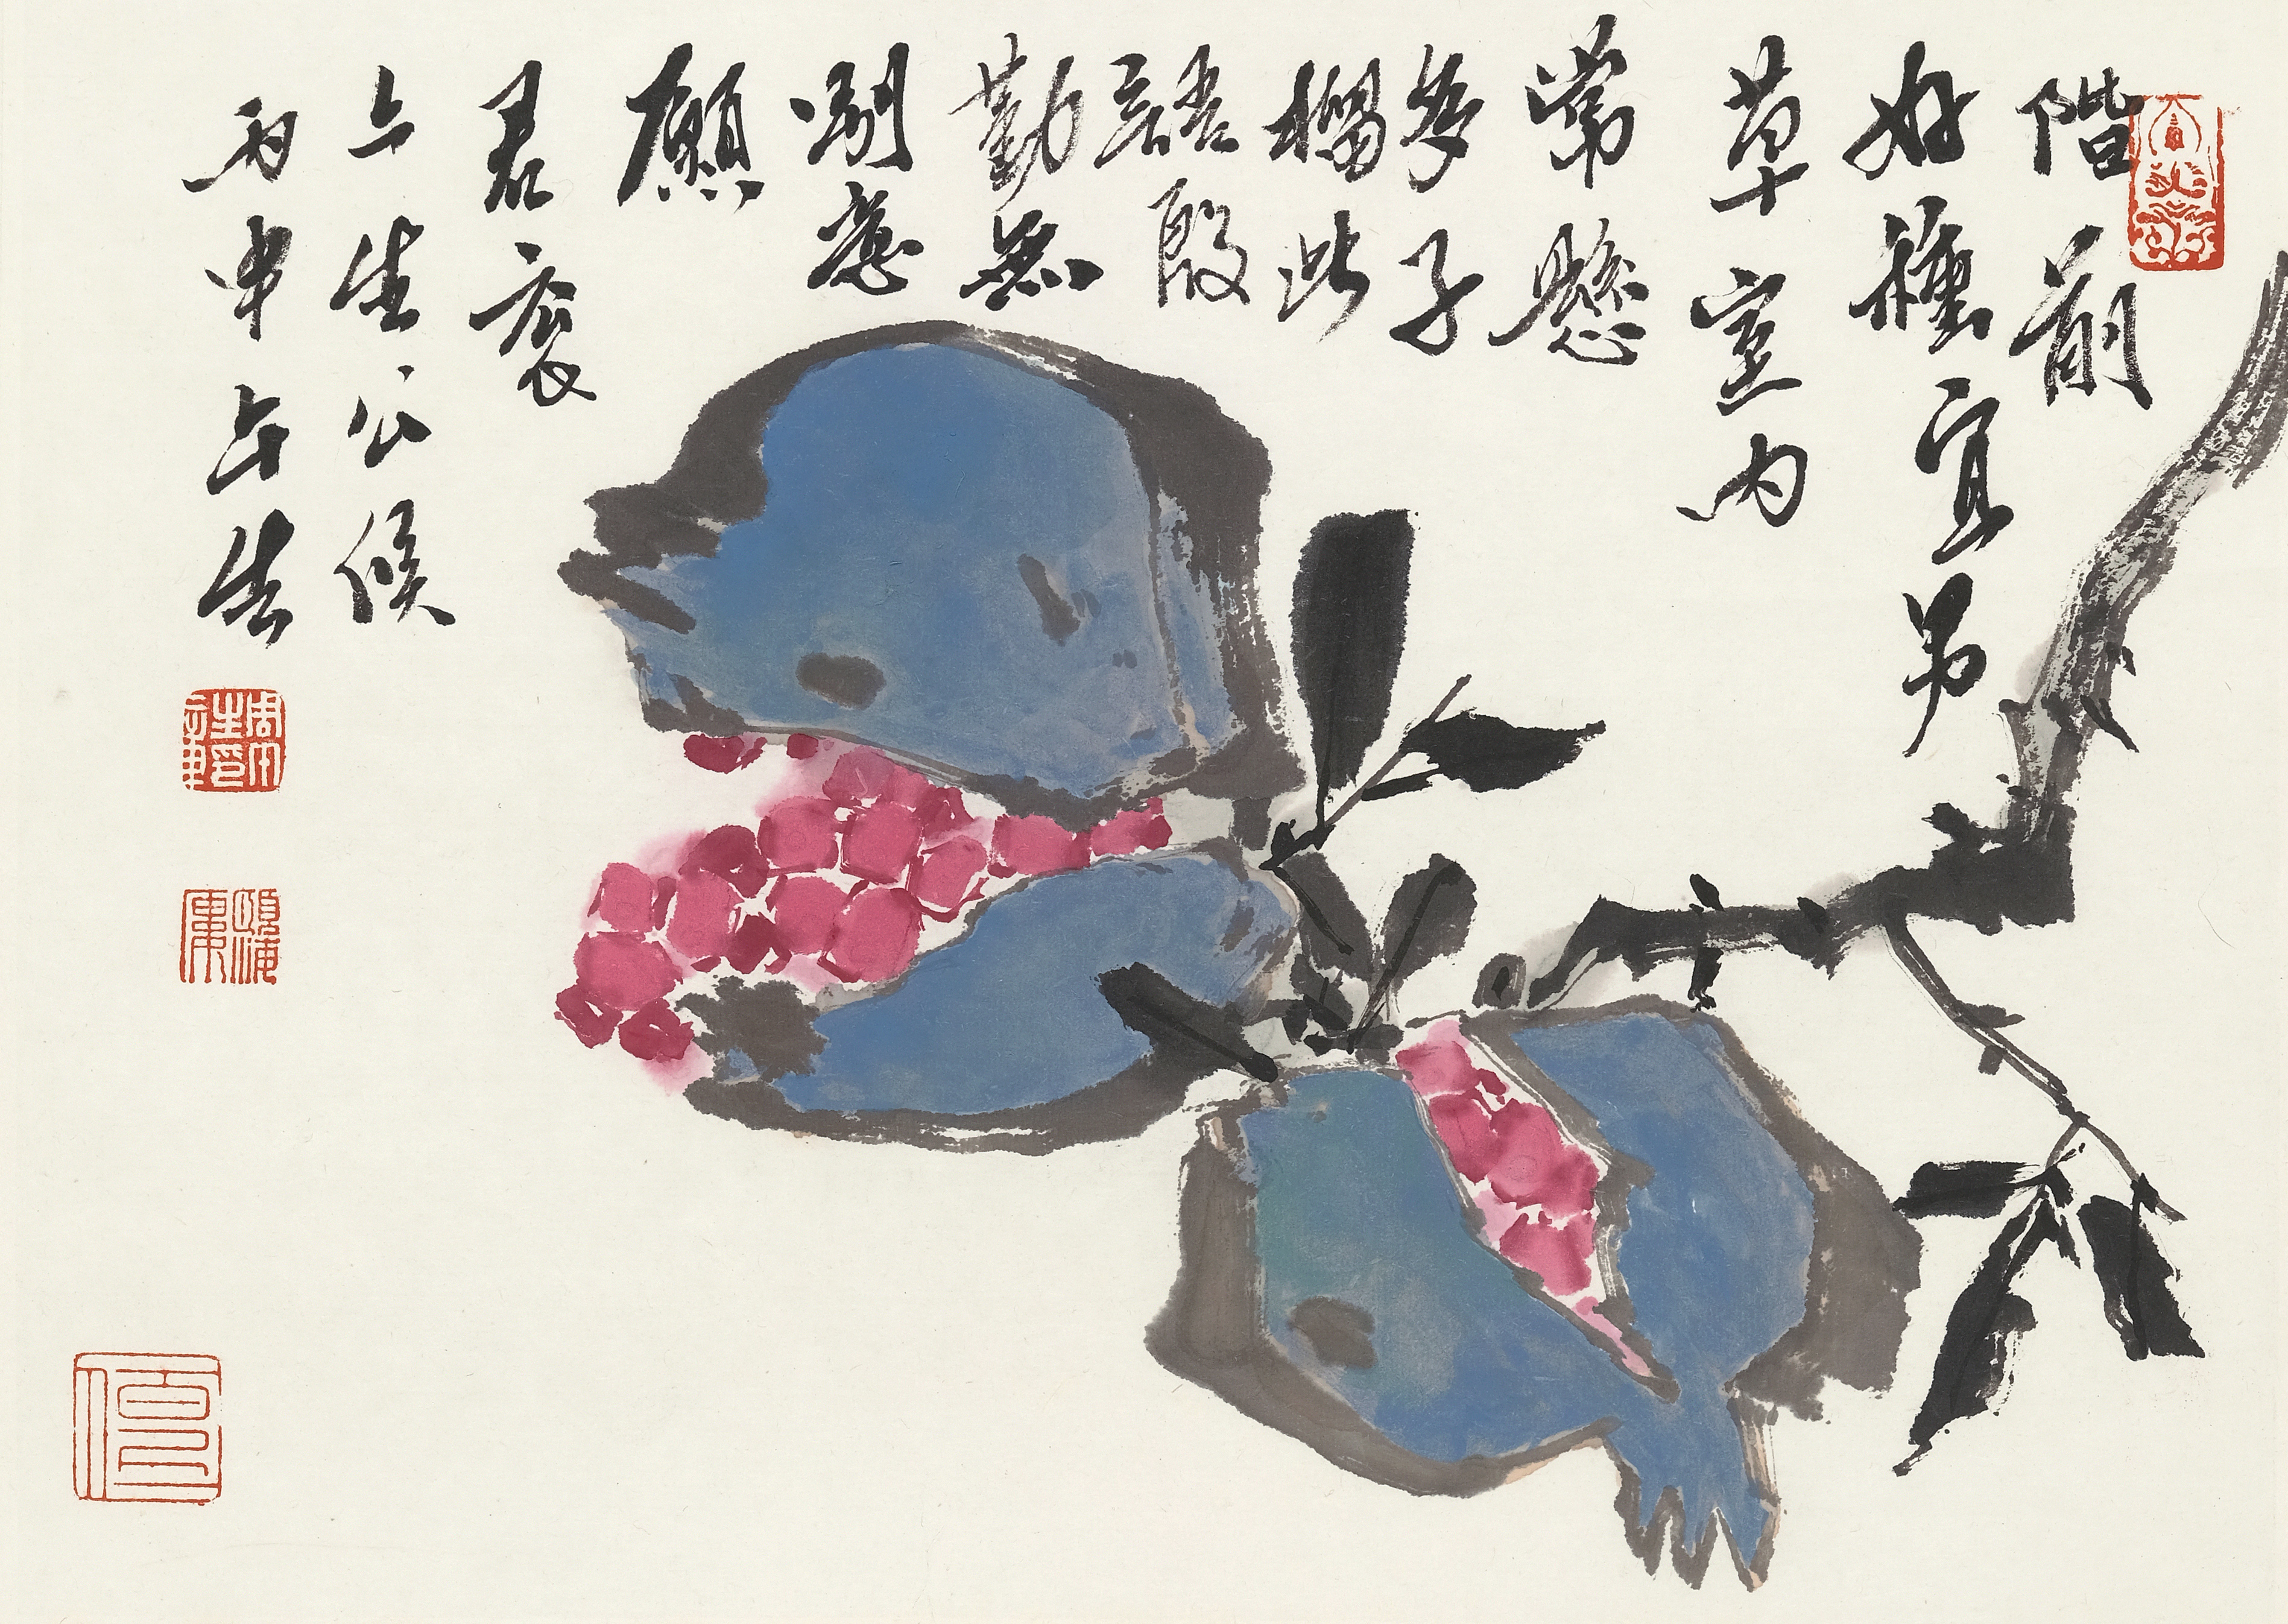 階前
好種宜男
草室內
常懸
多子
榴此
語殷
勤無
別意
願
君衮
々生公侯
丙申午生